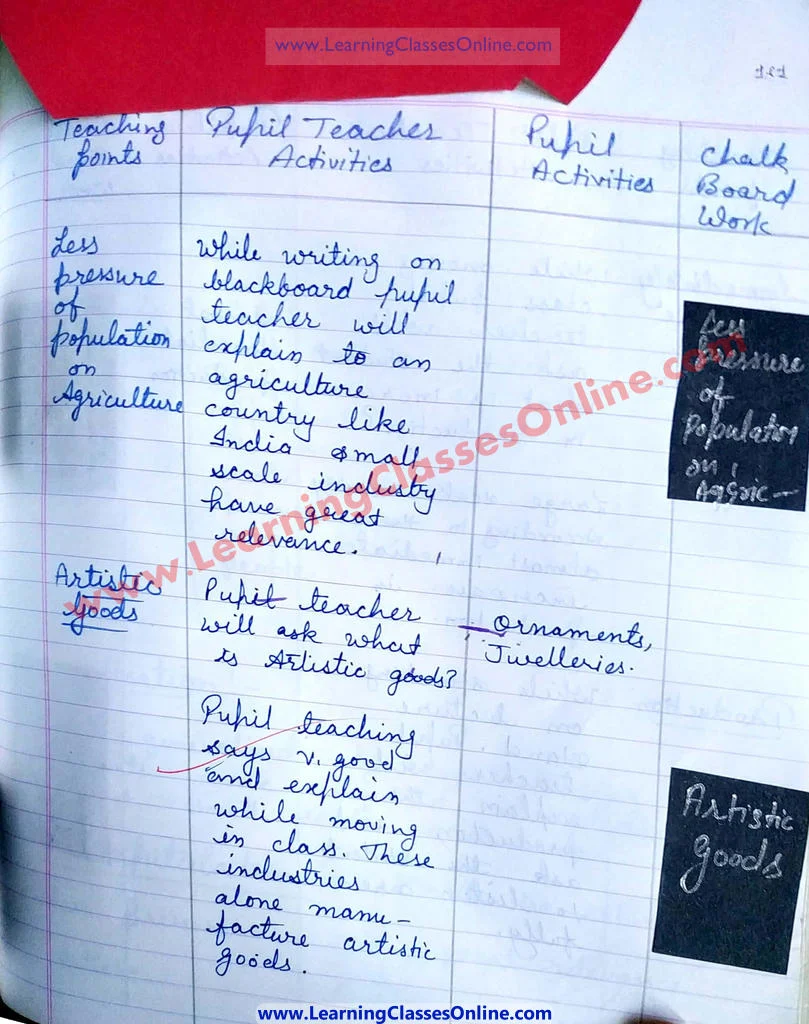 www.LearningClassesOnline.com
Teaching points
Pupil Teacher Activities
Pupil Activities
Chalk Board Work
Less
pressure
of
population
on
Agriculture
while writing on
blackboard pupil
teacher will
explain to an
agriculture
country like
India small
scale industry
have great
relevance.
Less
Pressure
of
Population
on
Agric-
www.LearningClassesOnline.com
Artistic
Goods
Pupil teacher
will ask what
is Artistic goods?
Ornaments,
Jwelleries.
Pupil teaching
says v. good
and explain
while moving
in class. These
industries
alone manu-
facture artistic
goods.
Artistic
goods
www.LearningClassesOnline.com